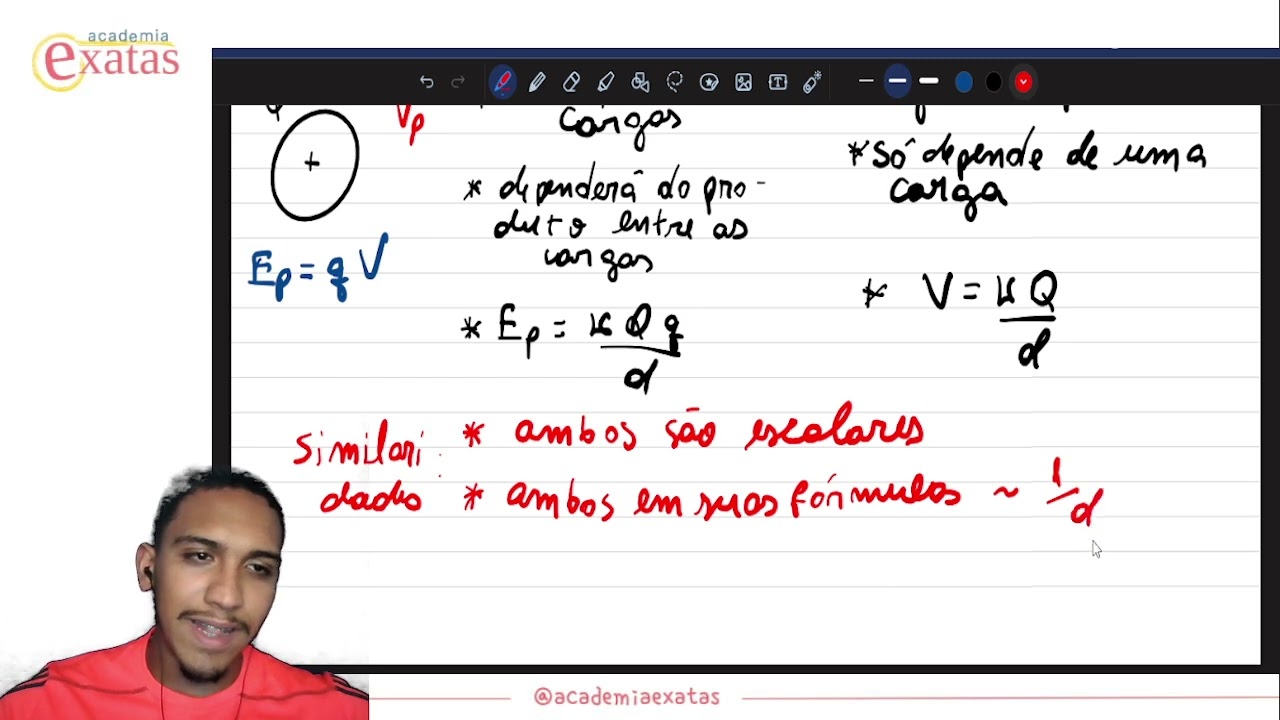 academia
exatas
Vp
cargas
* dependerá do pro-
duto entre as
cargas
* Ep = K Q q
d
Ep = q V
+
* Só depende de uma
carga
* V = K Q
d
Similari
dades
* ambos são escalares
* ambos em suas fórmulas ~ 1/d
@academiaexatas